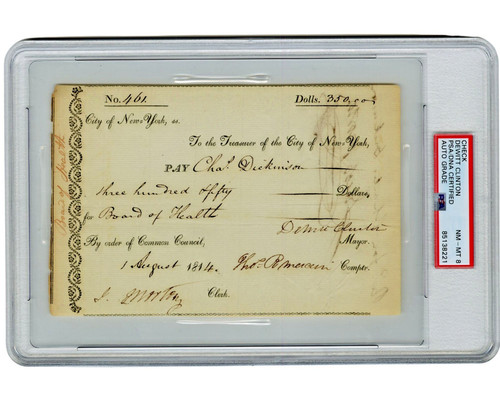 No. 461.
Dolls. 350,00
City of New-York, ss.
To the Treasurer of the City of New-York,
PAY Chas. Dickinson
three hundred & fifty Dollars,
for Board of Health
DeWitt Clinton
By order of Common Council, Mayor.
1 August 1814. Thos. Mercein Comptr.
J. Morton Clerk.
Board of Health
CHECK
DEWITT CLINTON
PSA/DNA CERTIFIED
AUTO GRADE
PSA
NM - MT 8
85138221